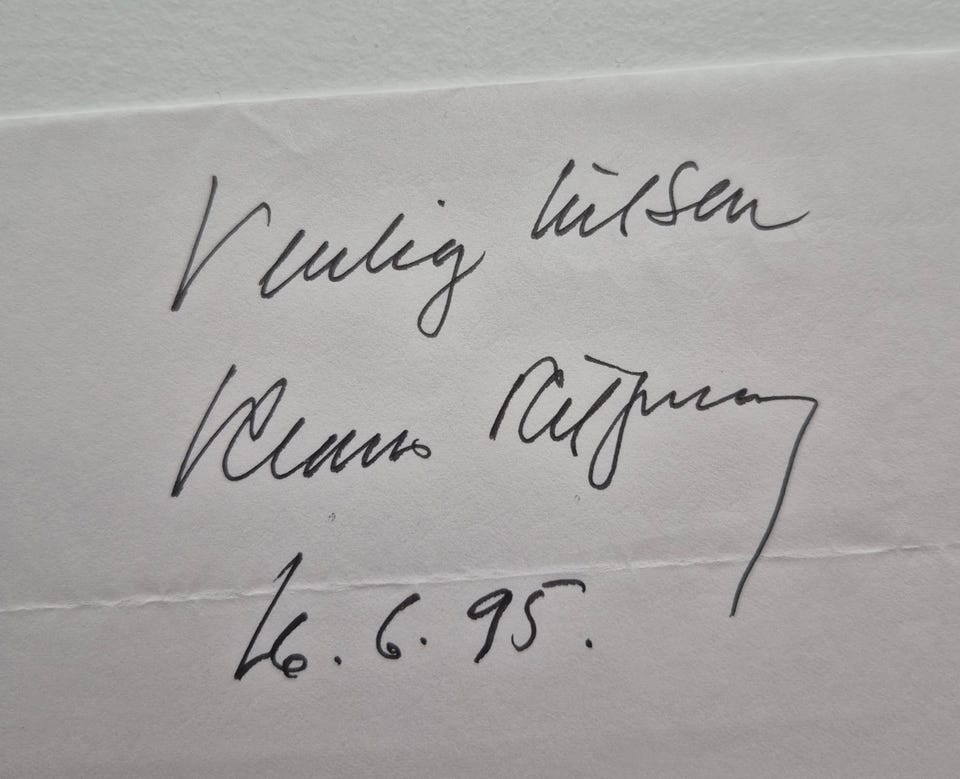 Venlig hilsen
Klaus
16.6.95.